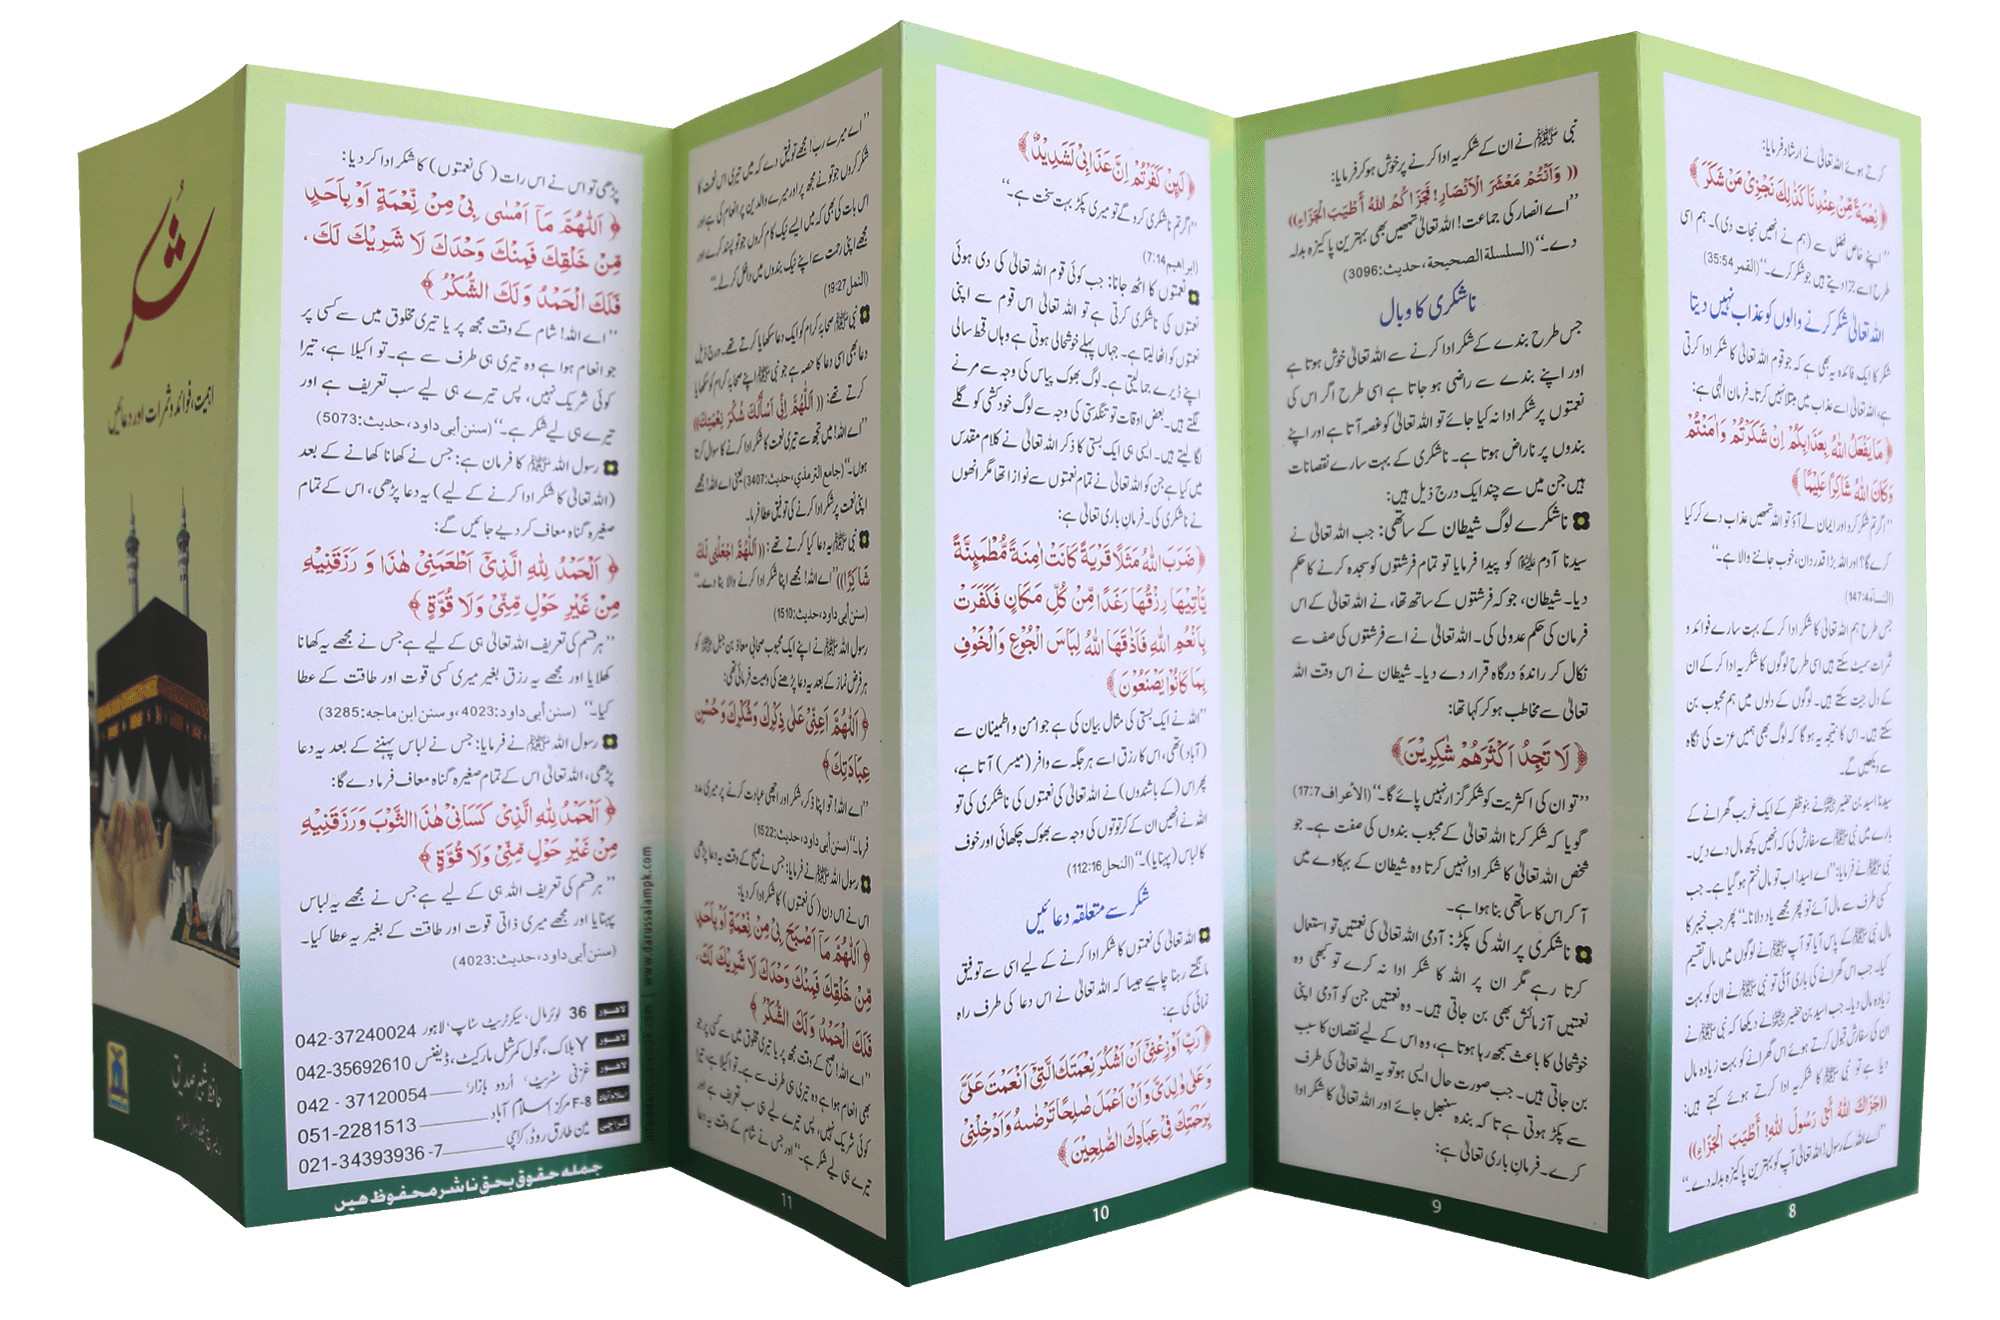 کرتے ہوئے اللہ تعالیٰ نے ارشاد فرمایا:
﴿نِعْمَةً مِّنْ عِنْدِنَا كَذٰلِكَ نَجْزِیْ مَنْ شَكَرَ﴾
’’اپنے خاص فضل سے (ہم نے انھیں نجات دی)۔ ہم اسی
طرح اسے جزا دیتے ہیں جو شکر کرے۔‘‘ (القمر 35:54)
اللہ تعالیٰ شکر کرنے والوں کو عذاب نہیں دیتا
شکر کا ایک فائدہ یہ بھی ہے کہ جو قوم اللہ تعالیٰ کا شکر ادا کرتی
ہے، اللہ تعالیٰ اسے عذاب میں مبتلا نہیں کرتا۔ فرمان الٰہی ہے:
﴿مَا یَفْعَلُ اللّٰهُ بِعَذَابِكُمْ اِنْ شَكَرْتُمْ وَاٰمَنْتُمْ
وَكَانَ اللّٰهُ شَاكِرًا عَلِیْمًا﴾
’’اگر تم شکر کرو اور ایمان لے آؤ تو اللہ تمھیں عذاب دے کر کیا
کرے گا؟ اور اللہ بڑا قدردان، خوب جاننے والا ہے۔‘‘
(النساء 147:4)
جس طرح ہم اللہ تعالیٰ کا شکر ادا کر کے بہت سارے فوائد و
ثمرات سمیٹ سکتے ہیں اسی طرح لوگوں کا شکریہ ادا کر کے ان
کے دل جیت سکتے ہیں۔ لوگوں کے دلوں میں ہم محبوب بن
سکتے ہیں۔ اس کا نتیجہ یہ ہو گا کہ لوگ بھی ہمیں عزت کی نگاہ
سے دیکھیں گے۔
سیدنا اسید بن حضیر ؓ نے بنو ظفر کے ایک غریب گھرانے کے
بارے میں نبی ﷺ سے سفارش کی کہ انھیں کچھ مال دے دیں۔
نبی ﷺ نے فرمایا: ’’اے اسید! اب تو مال ختم ہو گیا ہے۔ جب
کسی طرف سے مال آئے تو پھر مجھے یاد دلانا۔‘‘ پھر جب خیبر کا
مال نبی ﷺ کے پاس آیا تو آپ ﷺ نے لوگوں میں مال تقسیم
کیا۔ جب اس گھرانے کی باری آئی تو نبی ﷺ نے ان کو بہت
زیادہ مال دیا۔ جب اسید بن حضیر ؓ نے دیکھا کہ نبی ﷺ نے
ان کی سفارش قبول کرتے ہوئے اس گھرانے کو بہت زیادہ مال
دیا ہے تو نبی ﷺ کا شکریہ ادا کرتے ہوئے کہتے ہیں:
((جَزَاكَ اللّٰهُ أَيْ رَسُولَ اللّٰهِ! أَطْیَبَ الْجَزَاءِ))
’’اے اللہ کے رسول! اللہ تعالیٰ آپ کو بہترین پاکیزہ بدلہ دے۔‘‘
8
نبی ﷺ نے ان کے شکریہ ادا کرنے پر خوش ہو کر فرمایا:
((وَأَنْتُمْ مَعْشَرَ الْأَنْصَارِ! فَجَزَاكُمُ اللّٰهُ أَطْیَبَ الْجَزَاءِ))
’’اے انصار کی جماعت! اللہ تعالیٰ تمھیں بھی بہترین پاکیزہ بدلہ
دے۔‘‘ (السلسلة الصحیحة، حدیث:3096)
ناشکری کا وبال
جس طرح بندے کے شکر ادا کرنے سے اللہ تعالیٰ خوش ہوتا ہے
اور اپنے بندے سے راضی ہو جاتا ہے اسی طرح اگر اس کی
نعمتوں پر شکر ادا نہ کیا جائے تو اللہ تعالیٰ کو غصہ آتا ہے اور اپنے
بندوں پر ناراض ہوتا ہے۔ ناشکری کے بہت سارے نقصانات
ہیں جن میں سے چند ایک درج ذیل ہیں:
ناشکرے لوگ شیطان کے ساتھی: جب اللہ تعالیٰ نے
سیدنا آدم علیہ السلام کو پیدا فرمایا تو تمام فرشتوں کو سجدہ کرنے کا حکم
دیا۔ شیطان، جو کہ فرشتوں کے ساتھ تھا، نے اللہ تعالیٰ کے اس
فرمان کی حکم عدولی کی۔ اللہ تعالیٰ نے اسے فرشتوں کی صف سے
نکال کر راندۂ درگاہ قرار دے دیا۔ شیطان نے اس وقت اللہ
تعالیٰ سے مخاطب ہو کر کہا تھا:
﴿لَا تَجِدُ اَكْثَرَهُمْ شٰكِرِیْنَ﴾
’’تو ان کی اکثریت کو شکر گزار نہیں پائے گا۔‘‘ (الأعراف 17:7)
گویا کہ شکر کرنا اللہ تعالیٰ کے محبوب بندوں کی صفت ہے۔ جو
شخص اللہ تعالیٰ کا شکر ادا نہیں کرتا وہ شیطان کے بہکاوے میں
آ کر اس کا ساتھی بنا ہوا ہے۔
ناشکری پر اللہ کی پکڑ: آدمی اللہ تعالیٰ کی نعمتیں تو استعمال
کرتا رہے مگر ان پر اللہ کا شکر ادا نہ کرے تو کبھی وہ
نعمتیں آزمائش بھی بن جاتی ہیں۔ وہ نعمتیں جن کو آدمی اپنی
خوشحالی کا باعث سمجھ رہا ہوتا ہے، وہ اس کے لیے نقصان کا سبب
بن جاتی ہیں۔ جب صورت حال ایسی ہو تو یہ اللہ تعالیٰ کی طرف
سے پکڑ ہوتی ہے تا کہ بندہ سنبھل جائے اور اللہ تعالیٰ کا شکر ادا
کرے۔ فرمان باری تعالیٰ ہے:
9
﴿لَىِٕنْ كَفَرْتُمْ اِنَّ عَذَابِیْ لَشَدِیْدٌ﴾
’’اگر تم ناشکری کرو گے تو میری پکڑ بہت سخت ہے۔‘‘
(ابراهیم 7:14)
نعمتوں کا اٹھ جانا: جب کوئی قوم اللہ تعالیٰ کی دی ہوئی
نعمتوں کی ناشکری کرتی ہے تو اللہ تعالیٰ اس قوم سے اپنی
نعمتوں کو اٹھا لیتا ہے۔ جہاں پہلے خوشحالی ہوتی ہے وہاں قحط سالی
اپنے ڈیرے جما لیتی ہے۔ لوگ بھوک پیاس کی وجہ سے مرنے
لگتے ہیں۔ بعض اوقات تو تنگدستی کی وجہ سے لوگ خودکشی کو گلے
لگا لیتے ہیں۔ ایسی ہی ایک بستی کا ذکر اللہ تعالیٰ نے کلام مقدس
میں کیا ہے جن کو اللہ تعالیٰ نے تمام نعمتوں سے نوازا تھا مگر انھوں
نے ناشکری کی۔ فرمان باری تعالیٰ ہے:
﴿ضَرَبَ اللّٰهُ مَثَلًا قَرْیَةً كَانَتْ اٰمِنَةً مُّطْمَىِٕنَّةً
یَّاْتِیْهَا رِزْقُهَا رَغَدًا مِّنْ كُلِّ مَكَانٍ فَكَفَرَتْ
بِاَنْعُمِ اللّٰهِ فَاَذَاقَهَا اللّٰهُ لِبَاسَ الْجُوْعِ وَالْخَوْفِ
بِمَا كَانُوْا یَصْنَعُوْنَ﴾
’’اللہ نے ایک بستی کی مثال بیان کی ہے جو امن و اطمینان سے
(آباد) تھی، اس کا رزق اسے ہر جگہ سے وافر (میسر) آتا ہے،
پھر اس (کے باشندوں) نے اللہ تعالیٰ کی نعمتوں کی ناشکری کی تو
اللہ نے انھیں ان کے کرتوتوں کی وجہ سے بھوک چکھائی اور خوف
کا لباس (پہنایا)۔‘‘ (النحل 112:16)
شکر سے متعلقہ دعائیں
اللہ تعالیٰ کی نعمتوں کا شکر ادا کرنے کے لیے اسی سے توفیق
مانگتے رہنا چاہیے جیسا کہ اللہ تعالیٰ نے اس دعا کی طرف راہ
نمائی کی ہے:
﴿رَبِّ اَوْزِعْنِیْۤ اَنْ اَشْكُرَ نِعْمَتَكَ الَّتِیْۤ اَنْعَمْتَ عَلَیَّ
وَعَلٰى وَالِدَیَّ وَاَنْ اَعْمَلَ صَالِحًا تَرْضٰىهُ وَاَدْخِلْنِیْ
بِرَحْمَتِكَ فِیْ عِبَادِكَ الصّٰلِحِیْنَ﴾
10
’’اے میرے رب! مجھے توفیق دے کہ میں تیری اس نعمت کا
شکر کروں جو تو نے مجھ پر اور میرے والدین پر انعام کی ہے اور
اس بات کی بھی کہ میں ایسے نیک کام کروں جو تو پسند کرے اور
مجھے اپنی رحمت سے اپنے نیک بندوں میں داخل کر لے۔‘‘
(النمل 19:27)
نبی ﷺ صحابۂ کرام کو ایک دعا سکھایا کرتے تھے۔ درج ذیل
دعا بھی اسی دعا کا حصہ ہے جو نبی ﷺ اپنے صحابۂ کرام کو سکھایا
کرتے تھے: ((اَللّٰهُمَّ إِنِّي أَسْأَلُكَ شُكْرَ نِعْمَتِكَ))
’’اے اللہ! میں تجھ سے تیری نعمت کا شکر ادا کرنے کا سوال کرتا
ہوں۔‘‘ (جامع الترمذي، حدیث:3407) یعنی اے اللہ! مجھے
اپنی نعمت پر شکر ادا کرنے کی توفیق عطا فرما۔
نبی ﷺ یہ دعا کیا کرتے تھے: ((اَللّٰهُمَّ اجْعَلْنِي لَكَ
شَاكِرًا)) ’’اے اللہ! مجھے اپنا شکر ادا کرنے والا بنا دے۔‘‘
(سنن أبي داود، حدیث:1510)
رسول اللہ ﷺ نے اپنے ایک محبوب صحابی معاذ بن جبل ؓ کو
ہر فرض نماز کے بعد یہ دعا پڑھنے کی وصیت فرمائی تھی:
﴿اَللّٰهُمَّ اَعِنِّیْ عَلٰى ذِكْرِكَ وَشُكْرِكَ وَحُسْنِ
عِبَادَتِكَ﴾
’’اے اللہ! تو اپنا ذکر، شکر اور اچھی عبادت کرنے پر میری مدد
فرما۔‘‘ (سنن أبي داود، حدیث:1522)
رسول اللہ ﷺ نے فرمایا: جس نے صبح کے وقت یہ دعا پڑھی
اس نے اس دن (کی نعمتوں) کا شکر ادا کر دیا:
﴿اَللّٰهُمَّ مَاۤ اَصْبَحَ بِیْ مِنْ نِّعْمَةٍ اَوْ بِاَحَدٍ
مِّنْ خَلْقِكَ فَمِنْكَ وَحْدَكَ لَا شَرِیْكَ لَكَ،
فَلَكَ الْحَمْدُ وَلَكَ الشُّكْرُ﴾
’’اے اللہ! صبح کے وقت مجھ پر یا تیری مخلوق میں سے کسی پر جو
بھی انعام ہوا ہے وہ تیری ہی طرف سے ہے۔ تو اکیلا ہے، تیرا
کوئی شریک نہیں، پس تیرے لیے ہی سب تعریف ہے اور
تیرے ہی لیے شکر ہے۔‘‘ اور جس نے شام کے وقت یہ دعا
11
پڑھی تو اس نے اس رات (کی نعمتوں) کا شکر ادا کر دیا:
﴿اَللّٰهُمَّ مَاۤ اَمْسٰى بِیْ مِنْ نِّعْمَةٍ اَوْ بِاَحَدٍ
مِّنْ خَلْقِكَ فَمِنْكَ وَحْدَكَ لَا شَرِیْكَ لَكَ،
فَلَكَ الْحَمْدُ وَلَكَ الشُّكْرُ﴾
’’اے اللہ! شام کے وقت مجھ پر یا تیری مخلوق میں سے کسی پر
جو انعام ہوا ہے وہ تیری ہی طرف سے ہے۔ تو اکیلا ہے، تیرا
کوئی شریک نہیں، پس تیرے ہی لیے سب تعریف ہے اور
تیرے ہی لیے شکر ہے۔‘‘ (سنن أبي داود، حدیث:5073)
رسول اللہ ﷺ کا فرمان ہے: جس نے کھانا کھانے کے بعد
(اللہ تعالیٰ کا شکر ادا کرنے کے لیے) یہ دعا پڑھی، اس کے تمام
صغیرہ گناہ معاف کر دیے جائیں گے:
﴿اَلْحَمْدُ لِلّٰهِ الَّذِیْۤ اَطْعَمَنِیْ هٰذَا وَ رَزَقَنِیْهِ
مِنْ غَیْرِ حَوْلٍ مِّنِّیْ وَلَا قُوَّةٍ﴾
’’ہر قسم کی تعریف اللہ تعالیٰ ہی کے لیے ہے جس نے مجھے یہ کھانا
کھلایا اور مجھے یہ رزق بغیر میری کسی قوت اور طاقت کے عطا
کیا۔‘‘ (سنن أبي داود:4023، و سنن ابن ماجه:3285)
رسول اللہ ﷺ نے فرمایا: جس نے لباس پہننے کے بعد یہ دعا
پڑھی، اللہ تعالیٰ اس کے تمام صغیرہ گناہ معاف فرما دے گا:
﴿اَلْحَمْدُ لِلّٰهِ الَّذِیْ كَسَانِیْ هٰذَا الثَّوْبَ وَرَزَقَنِیْهِ
مِنْ غَیْرِ حَوْلٍ مِّنِّیْ وَلَا قُوَّةٍ﴾
’’ہر قسم کی تعریف اللہ ہی کے لیے ہے جس نے مجھے یہ لباس
پہنایا اور مجھے میری ذاتی قوت اور طاقت کے بغیر یہ عطا کیا۔
(سنن أبي داود، حدیث:4023)
لاہور 36 لوئر مال، سیکرٹریٹ سٹاپ، لاہور 042-37240024
لاہور Y بلاک، گول کمرشل مارکیٹ، ڈیفنس 042-35692610
لاہور غزنی سٹریٹ، اُردو بازار، 042 - 37120054
اسلام آباد F-8 مرکز اسلام آباد 051-2281513
کراچی مین طارق روڈ، کراچی 021-34393936 -7
جملہ حقوق بحق ناشر محفوظ ہیں
info@darussalampk.com | www.darussalampk.com
شُکر
اہمیت، فوائد و ثمرات اور دعائیں
حافظ شبیر صدیق